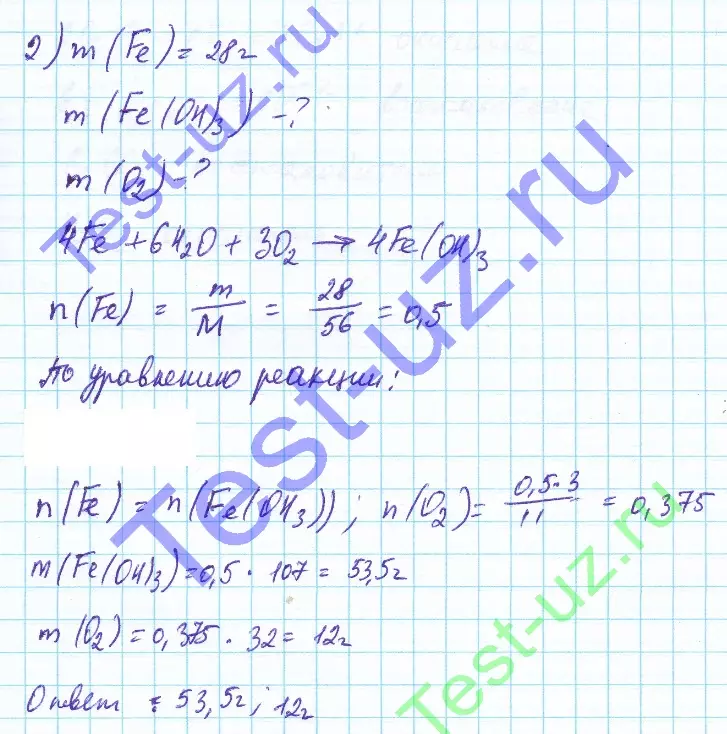 2) m (Fe) = 28г
m (Fe(OH)3) - ?
m (O2) - ?
4Fe + 6H2O + 3O2 → 4Fe(OH)3
n (Fe) = m/M = 28/56 = 0,5
По уравнению реакции:
n (Fe) = n (Fe(OH3)); n (O2) = 0,5·3/4 = 0,375
m (Fe(OH)3) = 0,5 · 107 = 53,5г
m (O2) = 0,375 · 32 = 12г
Ответ : 53,5г; 12г
Test-uz.ru
Test-uz.ru
Test-uz.ru